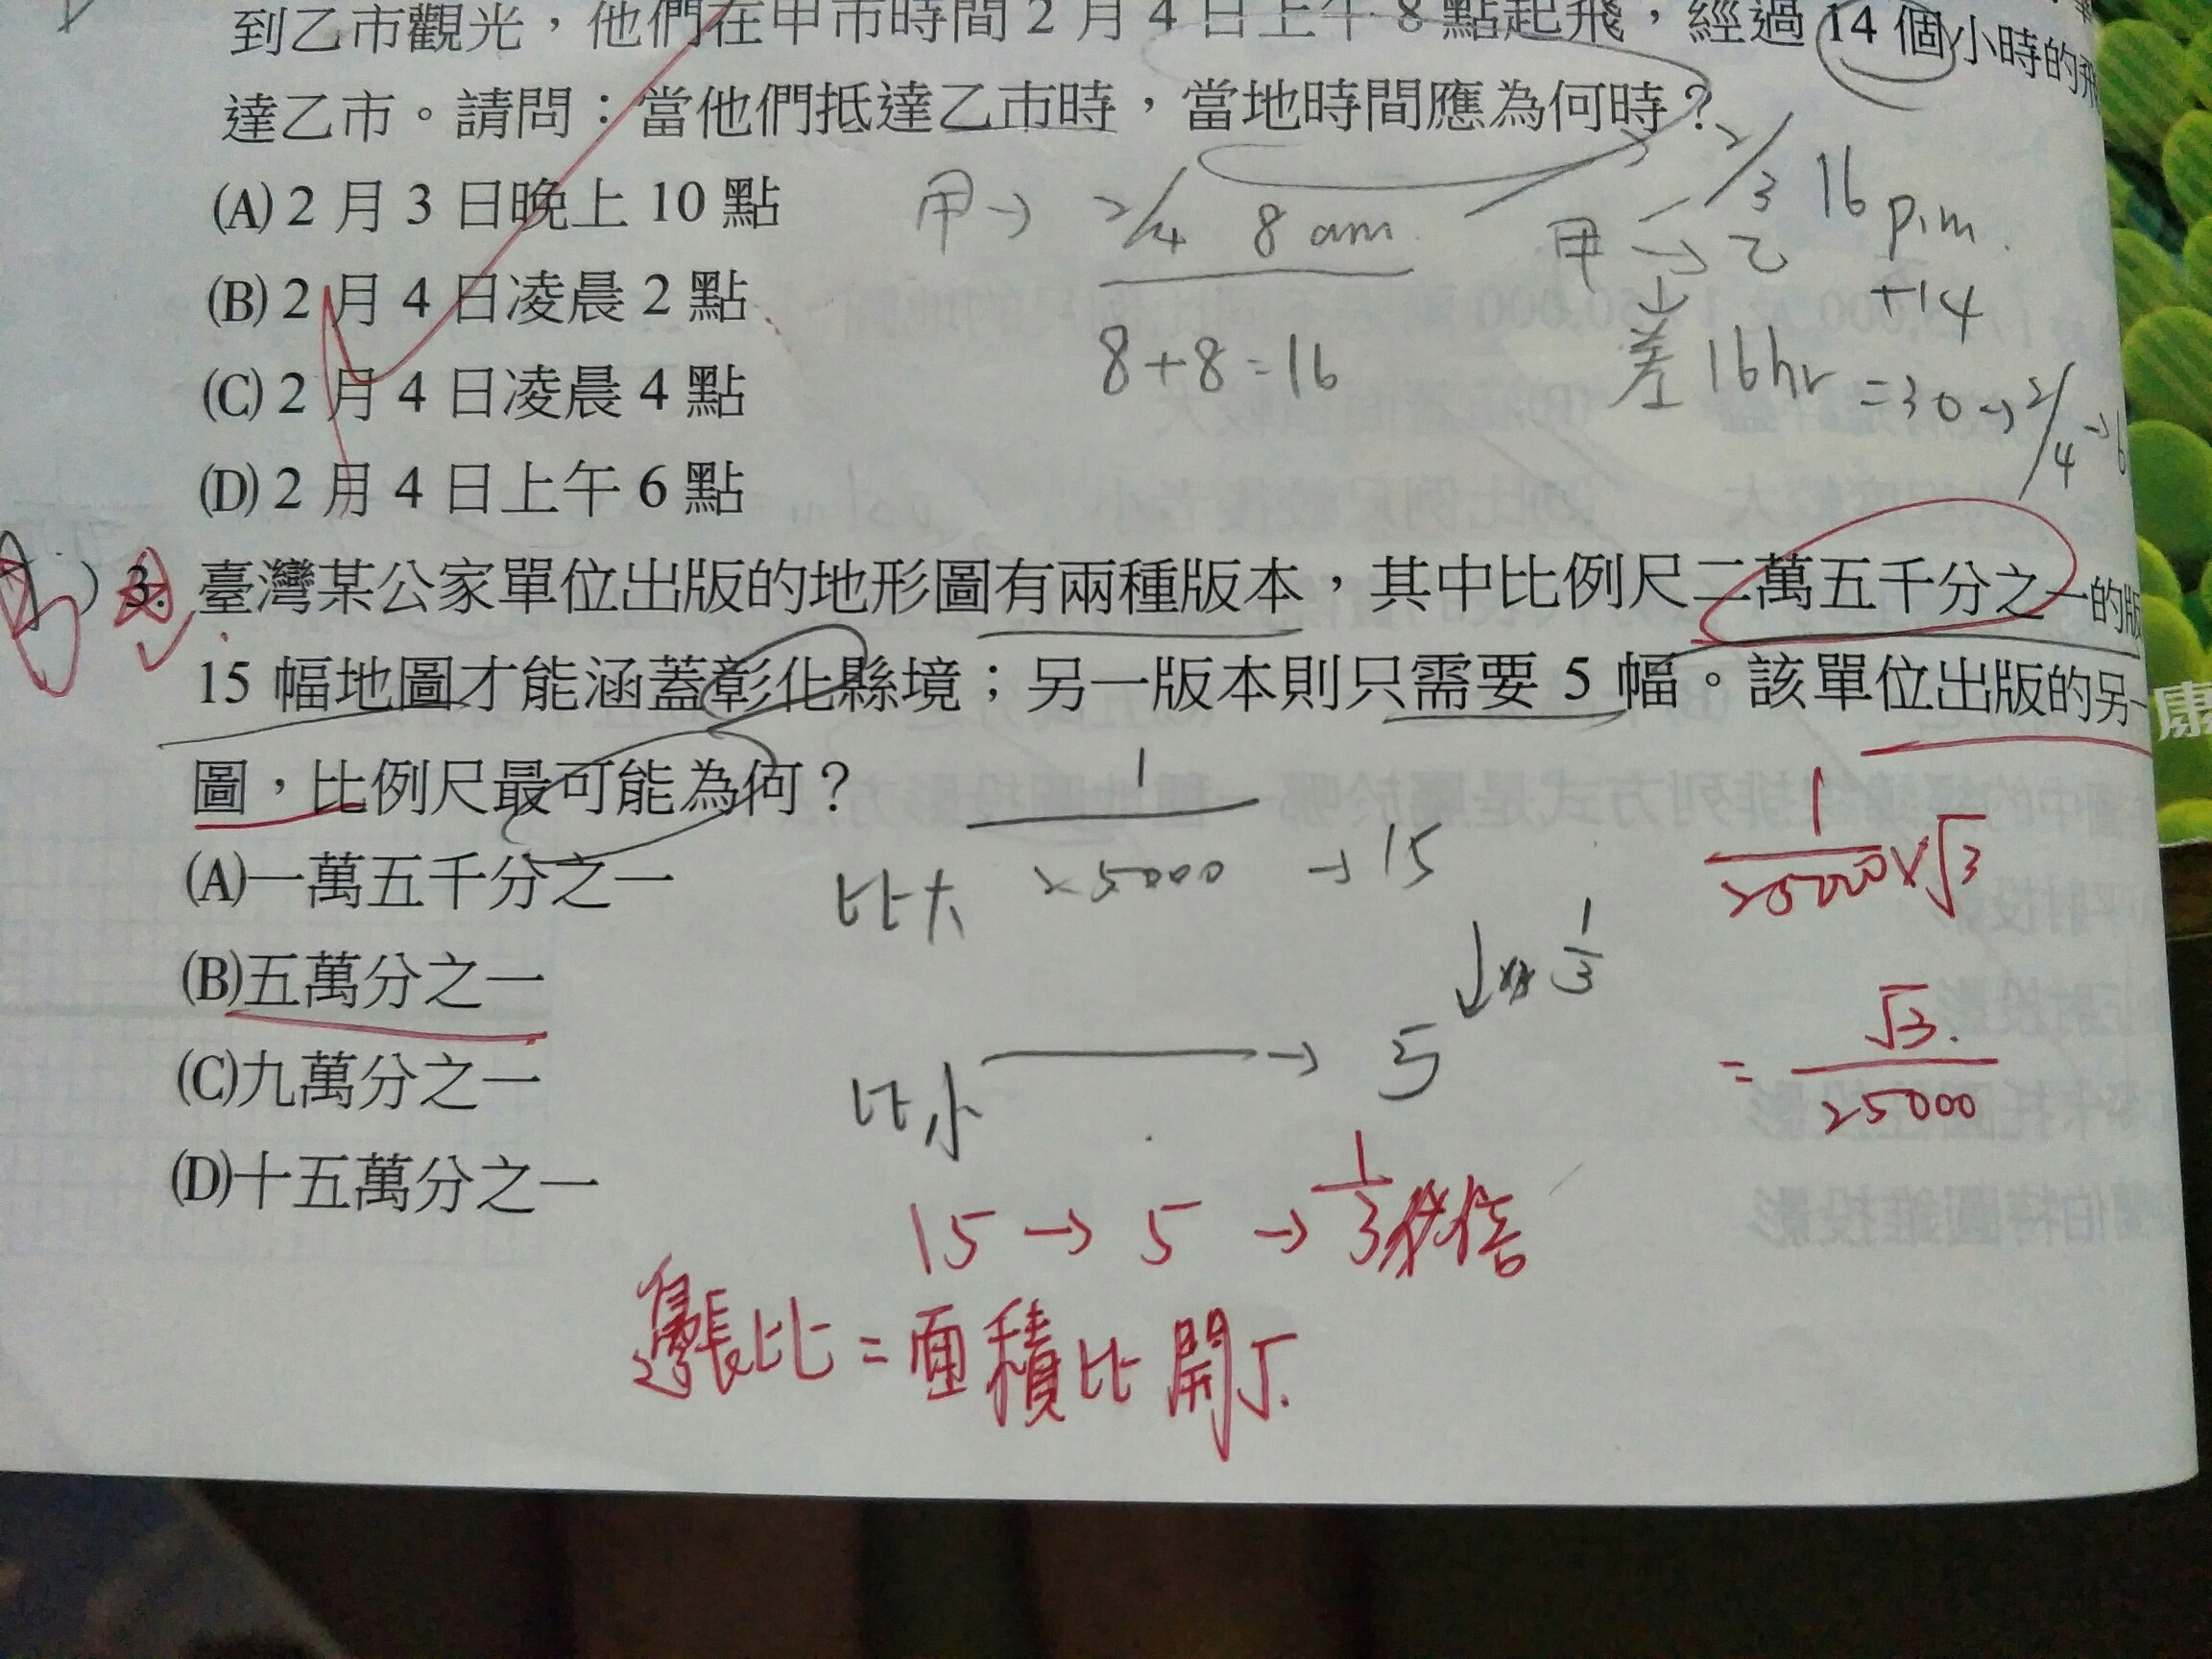 到乙市觀光，他們在甲市時間 2 月 4 日上午 8 點起飛，經過 14 個小時的飛
達乙市。請問：當他們抵達乙市時，當地時間應為何時？
(A) 2 月 3 日晚上 10 點
(B) 2 月 4 日凌晨 2 點
(C) 2 月 4 日凌晨 4 點
(D) 2 月 4 日上午 6 點
甲→ 2/4 8 am
8+8=16
2/3 16 p.m.
甲→乙
+14
差 16hr
=30→2/4→6
) 3. 臺灣某公家單位出版的地形圖有兩種版本，其中比例尺二萬五千分之一的版
15 幅地圖才能涵蓋彰化縣境；另一版本則只需要 5 幅。該單位出版的另一
圖，比例尺最可能為何？
(A)一萬五千分之一
(B)五萬分之一
(C)九萬分之一
(D)十五萬分之一
比大 1/25000 →15
↓ 1/3
比小 → 5
1/25000×√3
=√3/25000
15→5→1/3倍
邊長比=面積比開√
康